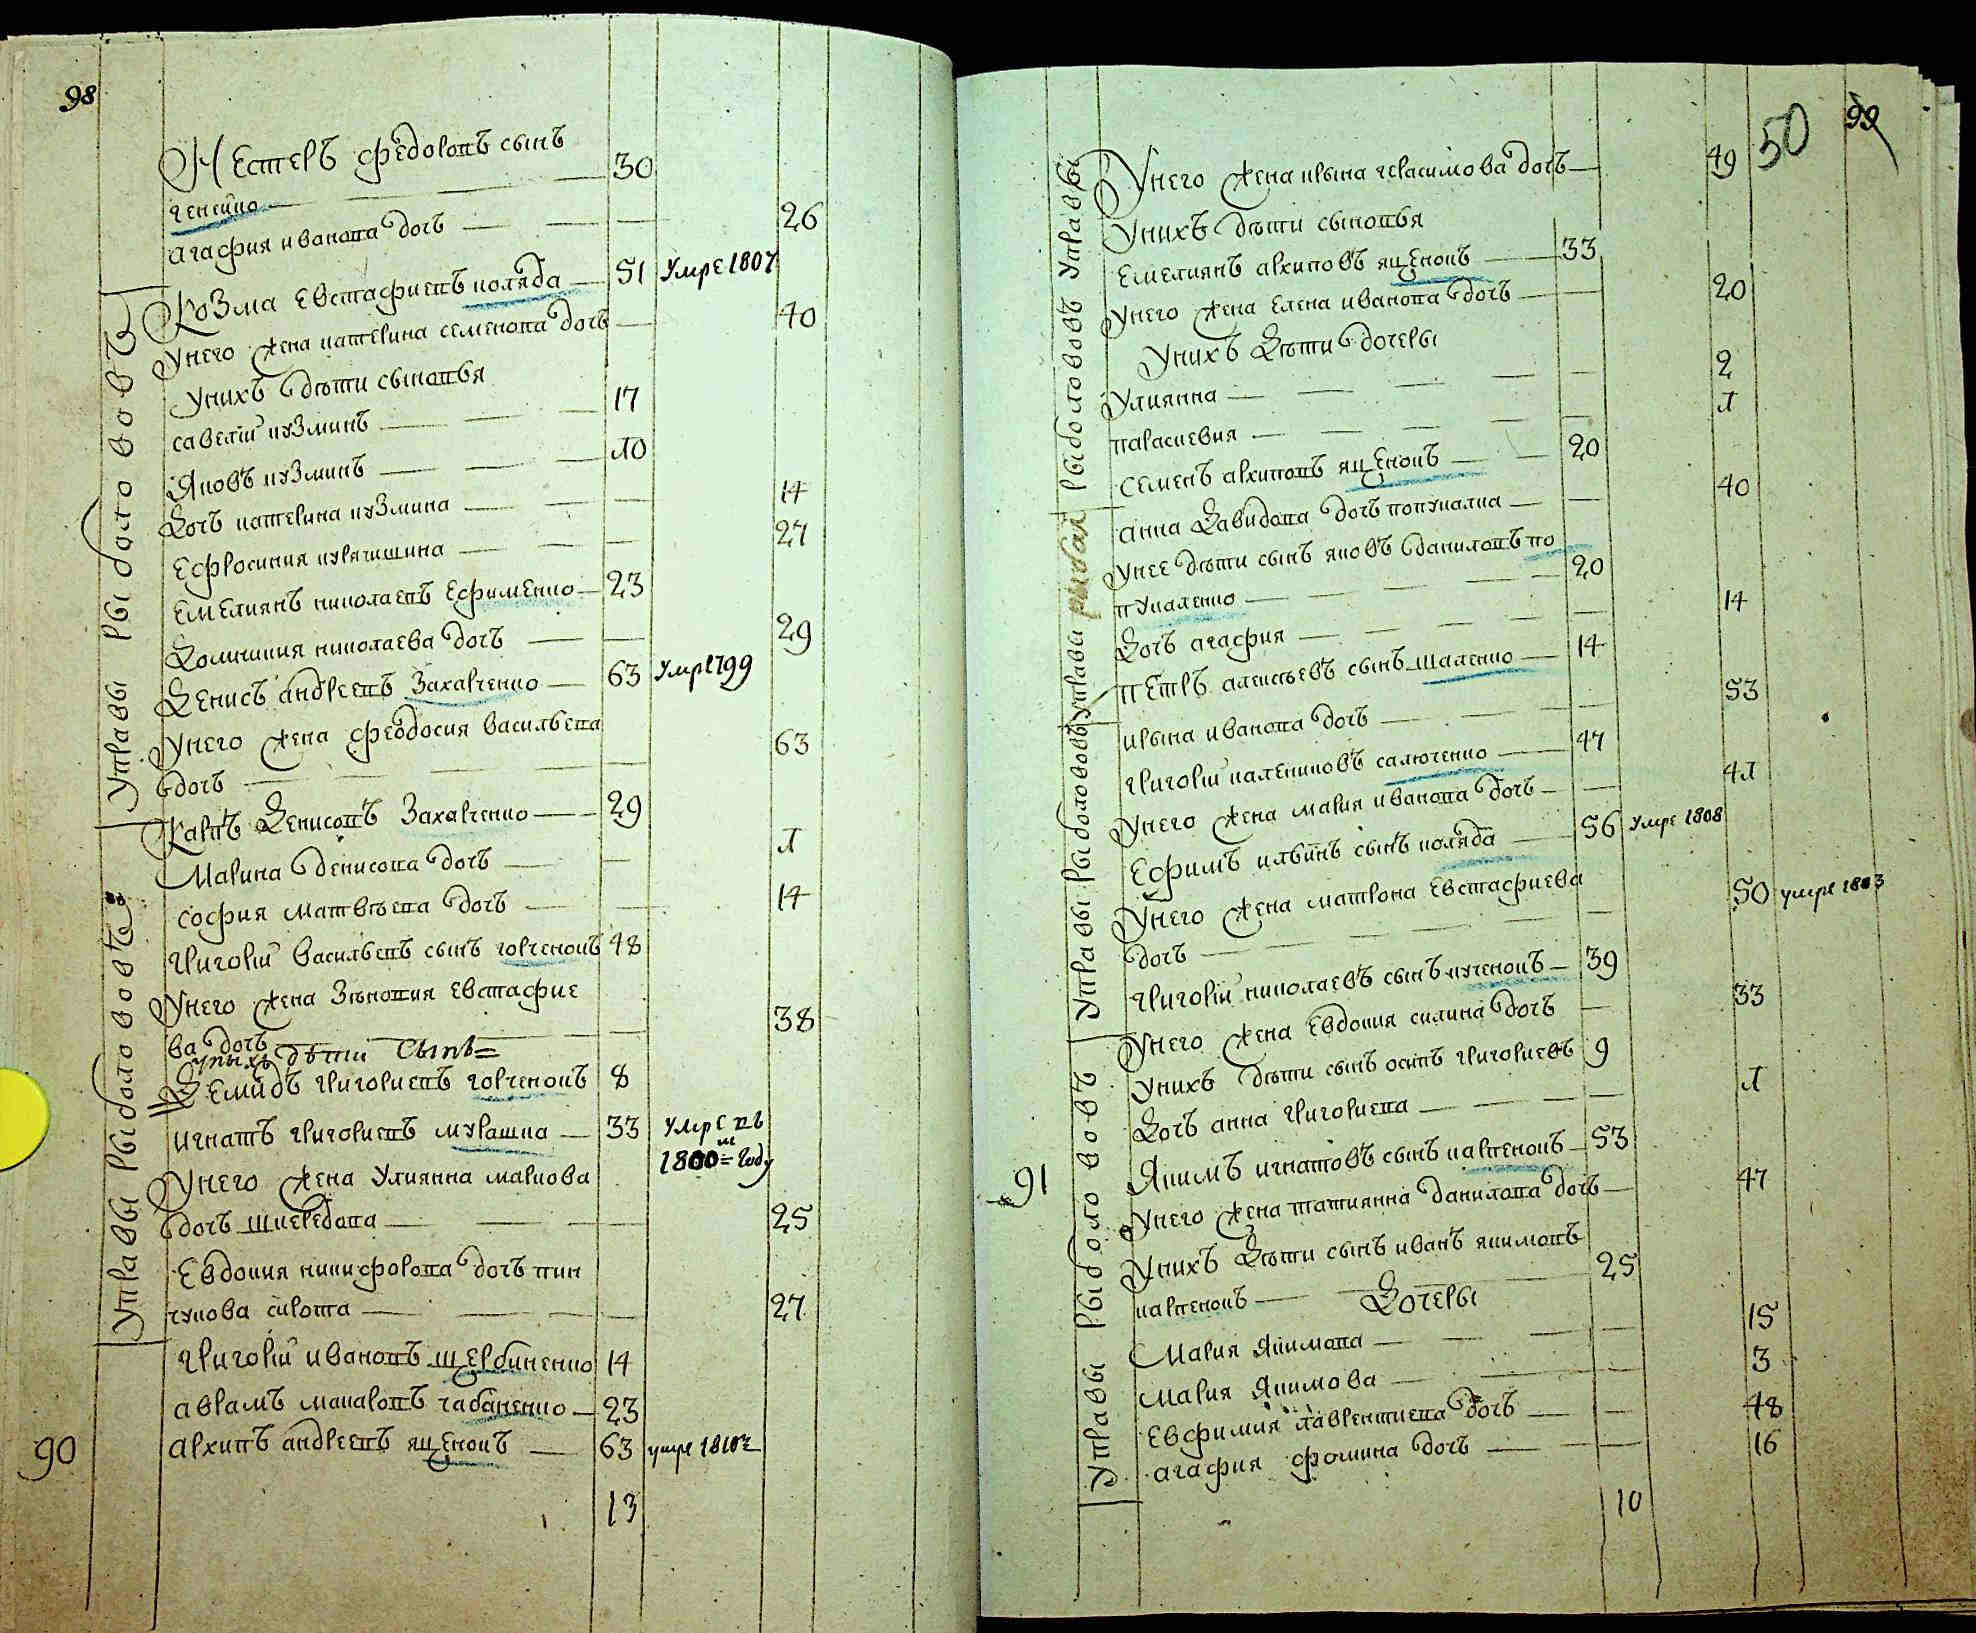 98
Нестеръ федоровъ сынъ
ченейко 30
агафия иванова дочь 26
Козма Евстафиевъ коляда 51 умре 1807
Унего жена катерина семенова дочь 40
Унихъ дѣти сыновья
савелий кузминъ 17
Яковъ кузминъ 10
Дочь катерина кузмина 14
Ефросиния курячишина 27
Емелиянъ николаевъ Ефименко 23
Домникия николаева дочь 29
Денисъ андреевъ Захарченко 63 умре 1799
Унего жена феодосия Васильева
дочь 63
Карпъ Денисовъ Захарченко 29
Марина денисова дочь 1
София Матвѣева дочь 14
Григорий Васильевъ сынъ горченокъ 48
Унего жена Зѣновия Евстафие
ва дочь 38
Унихъ дѣти сынъ=
Демидъ григориевъ горченокъ 8
Игнатъ григориевъ мурашка 33 умре въ
1800=м году
Унего жена Улиянна маркова
дочь шкередова 25
Евдокия никифорова дочь пин
чукова сирота 27
Григорий ивановъ щербиненко 14
аврамъ макаровъ чабаненко 23
90 архипъ андреевъ ященокъ 63 умре 1810г
13
Управы рыболововъ
Управы рыболововъ
50 99
Унего жена ирына герасимова дочь 49
Унихъ дѣти сыновья
Емелиянъ архиповъ ященокъ 33
Унего жена Елена иванова дочь 20
Унихъ Дѣти дочеры
Улиянна 2
параскевия 1
Семенъ архиповъ ященокъ 20
анна Давидова дочь попукалка 40
Унее дѣти сынъ яковъ даниловъ по
пукаленко 20
Дочь агафия 14
петръ алексѣевъ сынъ шаленко 14
ирына иванова дочь 53
григорий калениковъ салюченко 47
Унего жена мария иванова дочь 41
Ефимъ ильинъ сынъ коляда 56 умре 1808
Унего жена матрона Евстафиева
дочь 50 умре 1803
григорий николаевъ сынъ кученокъ 39
Унего жена Евдокия силина дочь 33
Унихъ дѣти сынъ осипъ григориевъ 9
Дочь анна григориева 1
91 Якимъ игнатовъ сынъ карпенокъ 53
Унего жена татиянна данилова дочь 47
Унихъ Дѣти сынъ иванъ якимовъ
карпенокъ 25
Дочеры
Мария Якимова 15
мария Якимова 3
Евфимия лаврентиева дочь 48
агафия фомина дочь 16
10
Управы рыболововъ
Управы рыбал
Управы рыболововъ
Управы рыболововъ